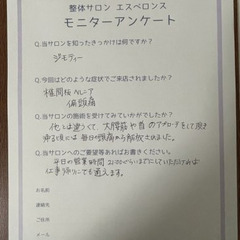 整体サロン エスペロンス
モニターアンケート
Q.当サロンを知ったきっかけは何ですか？
ジモティー
Q.今回はどのような症状でご来店されましたか？
椎間板ヘルニア
偏頭痛
Q.当サロンの施術を受けてみていかがでしたか？
他とは違うくて、大腰筋や首のアプローチをして頂き
帰る頃には毎日の頭痛から解放されました。
Q.当サロンへのご要望等あればお書きください。
平日の営業時間 21:00ぐらいまでにしていただければ
仕事帰りにでも通えます。
お名前
連絡先
ご住所
メール